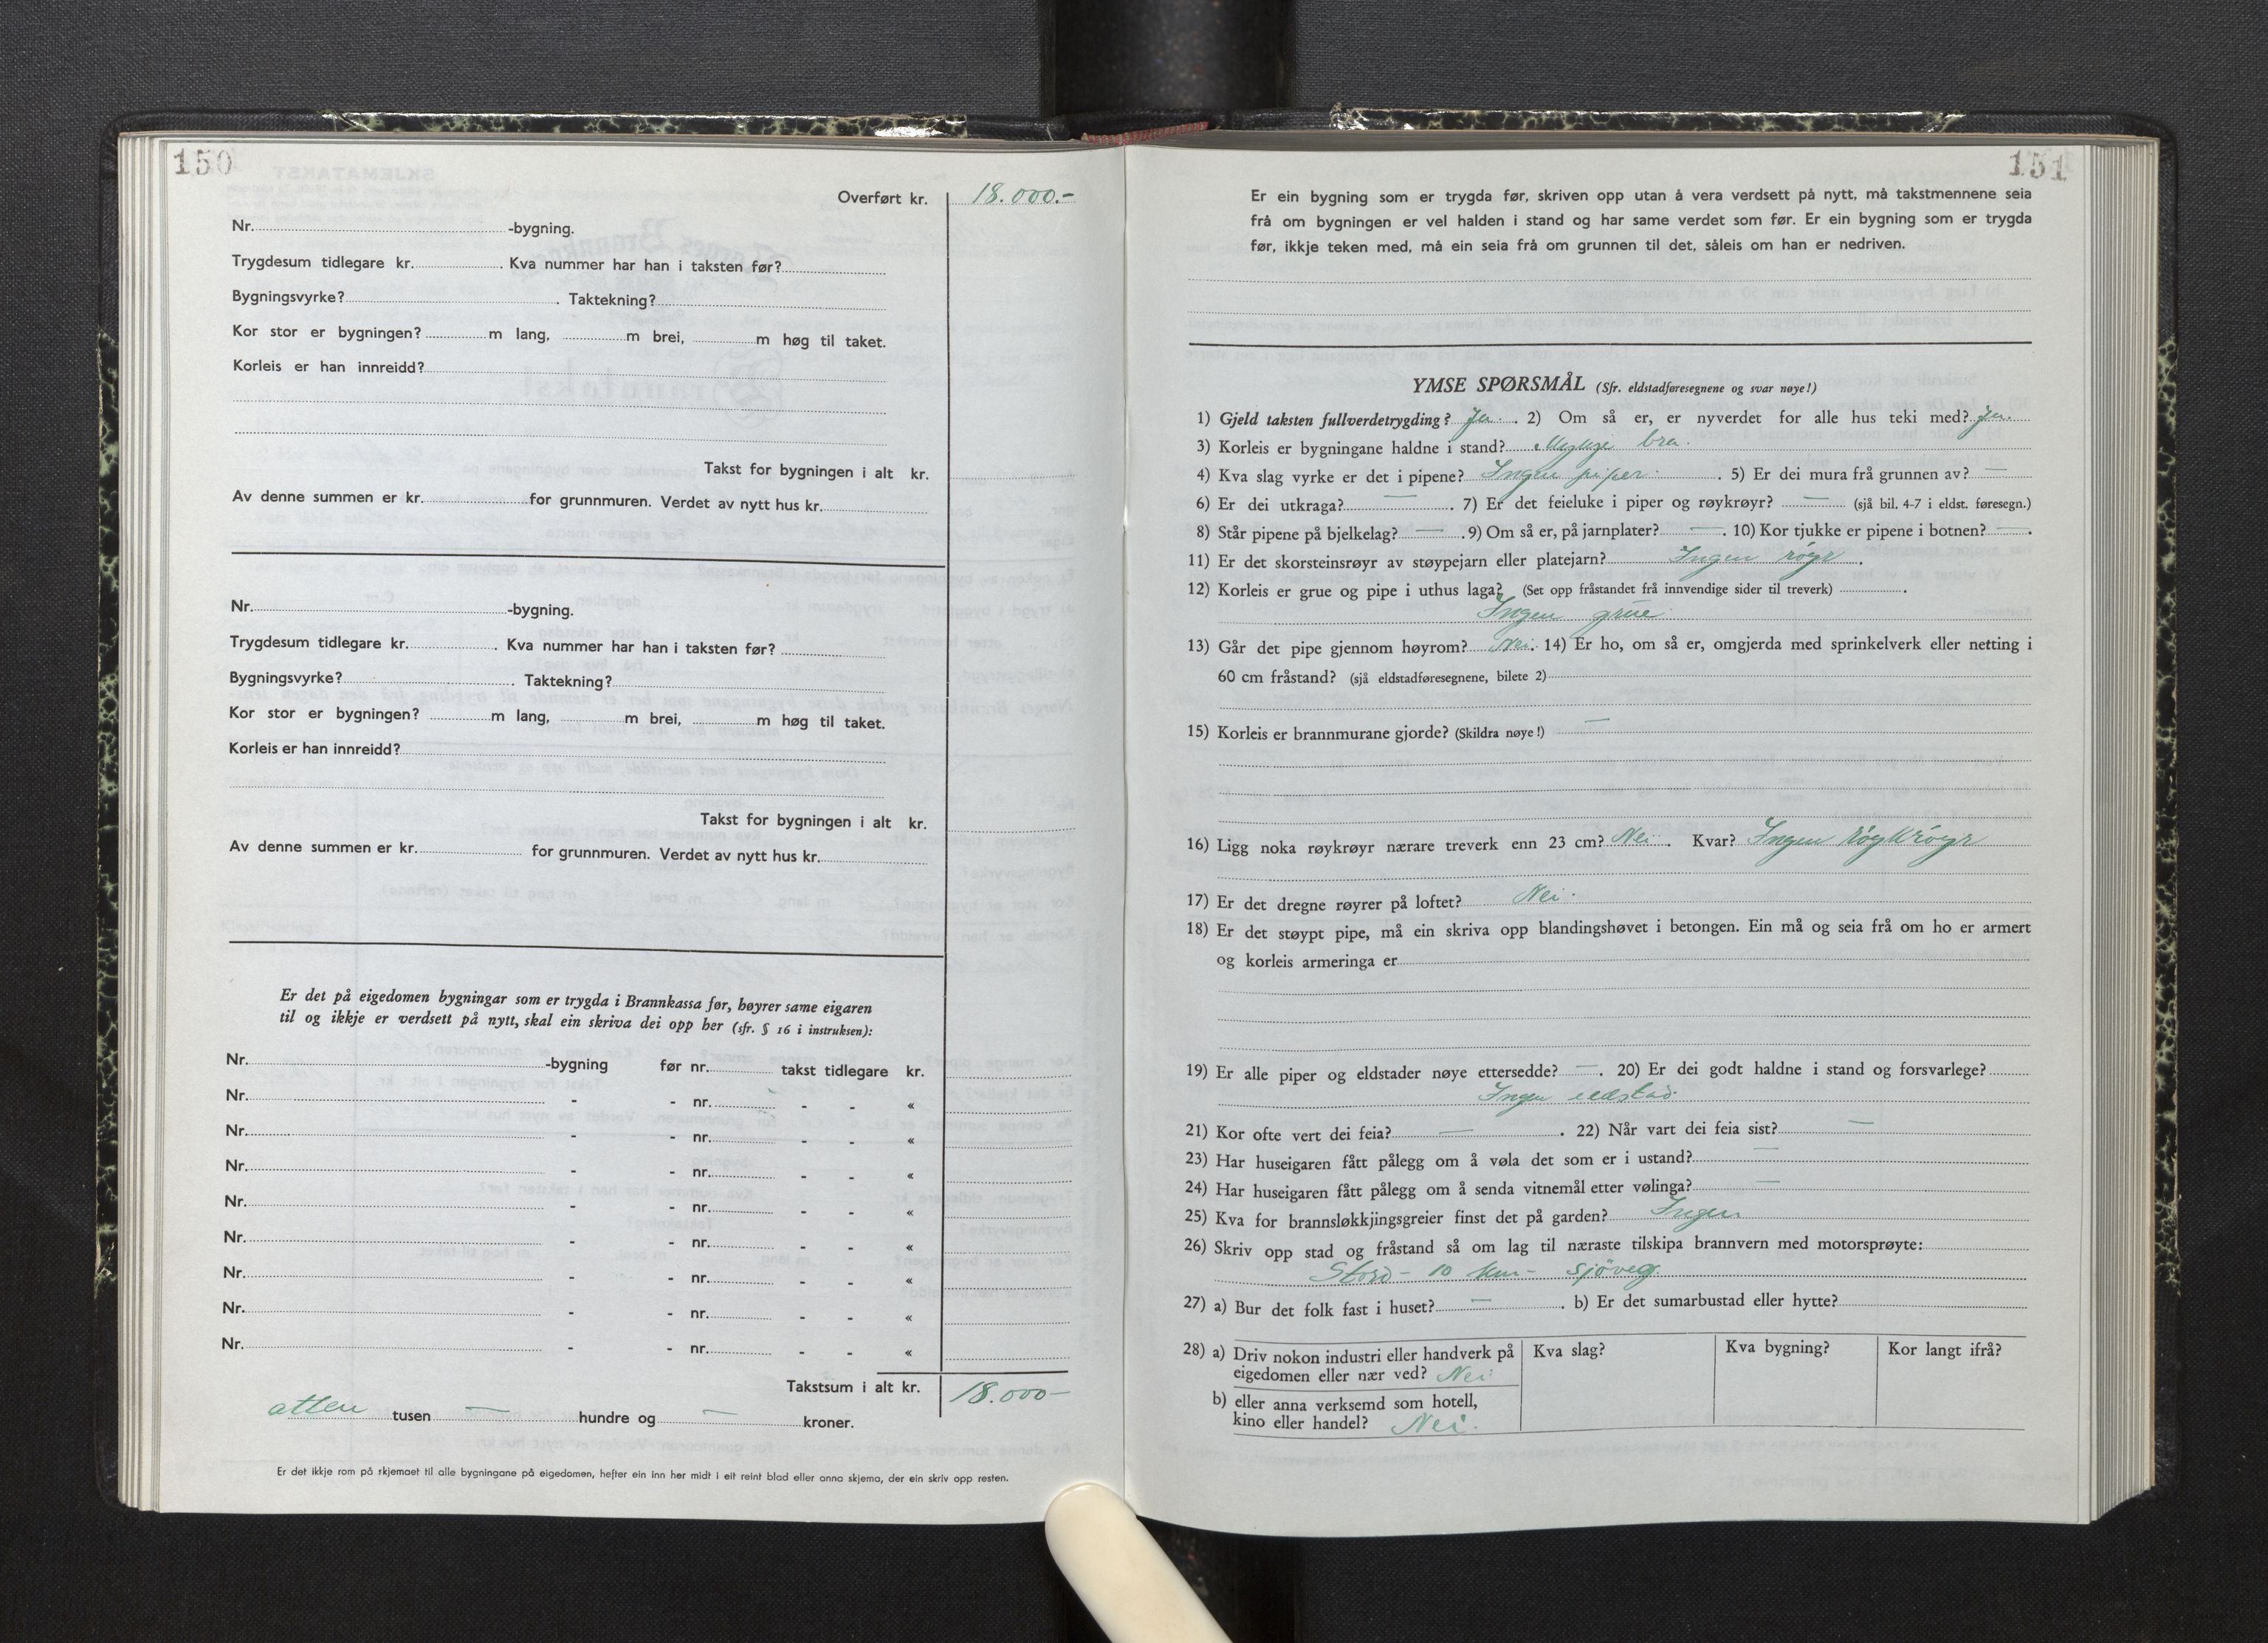 150
Overført kr. 18.000.-
Nr. -bygning.
Trygdesum tidlegare kr. . Kva nummer har han i taksten før?
Bygningsvyrke? . Taktekning?
Kor stor er bygningen? m lang, m brei, m høg til taket.
Korleis er han innreidd?
Takst for bygningen i alt kr.
Av denne summen er kr. for grunnmuren. Verdet av nytt hus kr.
Nr. -bygning.
Trygdesum tidlegare kr. . Kva nummer har han i taksten før?
Bygningsvyrke? . Taktekning?
Kor stor er bygningen? m lang, m brei, m høg til taket.
Korleis er han innreidd?
Takst for bygningen i alt kr.
Av denne summen er kr. for grunnmuren. Verdet av nytt hus kr.
Er det på eigedomen bygningar som er trygda i Brannkassa før, høyrer same eigaren
til og ikkje er verdsett på nytt, skal ein skriva dei opp her (sfr. § 16 i instruksen):
Nr. -bygning før nr. takst tidlegare kr.
Nr. - - nr. - - «
Nr. - - nr. - - «
Nr. - - nr. - - «
Nr. - - nr. - - «
Nr. - - nr. - - «
Nr. - - nr. - - «
Nr. - - nr. - - «
Nr. - - nr. - - «
Takstsum i alt kr. 18.000-
atten tusen — hundre og — kroner.
Er det ikkje rom på skjemaet til alle bygningane på eigedomen, hefter ein inn her midt i eit reint blad eller anna skjema, der ein skriv opp resten.
151
Er ein bygning som er trygda før, skriven opp utan å vera verdsett på nytt, må takstmennene seia
frå om bygningen er vel halden i stand og har same verdet som før. Er ein bygning som er trygda
før, ikkje teken med, må ein seia frå om grunnen til det, såleis om han er nedriven.
YMSE SPØRSMÅL (Sfr. eldstadføresegnene og svar nøye!)
1) Gjeld taksten fullverdetrygding? Ja. 2) Om så er, er nyverdet for alle hus teki med? Ja.
3) Korleis er bygningane haldne i stand? Mykje bra.
4) Kva slag vyrke er det i pipene? Ingen piper. . 5) Er dei mura frå grunnen av? —
6) Er dei utkraga? — . 7) Er det feieluke i piper og røykrøyr? — (sjå bil. 4-7 i eldst. føresegn.)
8) Står pipene på bjelkelag? — . 9) Om så er, på jarnplater? — . 10) Kor tjukke er pipene i botnen? — .
11) Er det skorsteinsrøyr av støypejarn eller platejarn? Ingen röyr .
12) Korleis er grue og pipe i uthus laga? (Set opp fråstandet frå innvendige sider til treverk) .
Ingen grue.
13) Går det pipe gjennom høyrom? Nei. 14) Er ho, om så er, omgjerda med sprinkelverk eller netting i
60 cm fråstand? (sjå eldstadføresegnene, bilete 2)
15) Korleis er brannmurane gjorde? (Skildra nøye!) —
16) Ligg noka røykrøyr nærare treverk enn 23 cm? Nei. Kvar? Ingen röykröyr
17) Er det dregne røyrer på loftet? Nei.
18) Er det støypt pipe, må ein skriva opp blandingshøvet i betongen. Ein må og seia frå om ho er armert
og korleis armeringa er
19) Er alle piper og eldstader nøye ettersedde? — . 20) Er dei godt haldne i stand og forsvarlege?
Ingen eldstad.
21) Kor ofte vert dei feia? — . 22) Når vart dei feia sist? —
23) Har huseigaren fått pålegg om å vøla det som er i ustand? —
24) Har huseigaren fått pålegg om å senda vitnemål etter vølinga? —
25) Kva for brannsløkkjingsgreier finst det på garden? Ingen
26) Skriv opp stad og fråstand så om lag til næraste tilskipa brannvern med motorsprøyte:
Stord - 10 km - sjöveg.
27) a) Bur det folk fast i huset? — . b) Er det sumarbustad eller hytte?
28) a) Driv nokon industri eller handverk på Kva slag? Kva bygning? Kor langt ifrå?
eigedomen eller nær ved? Nei
b) eller anna verksemd som hotell,
kino eller handel? Nei.